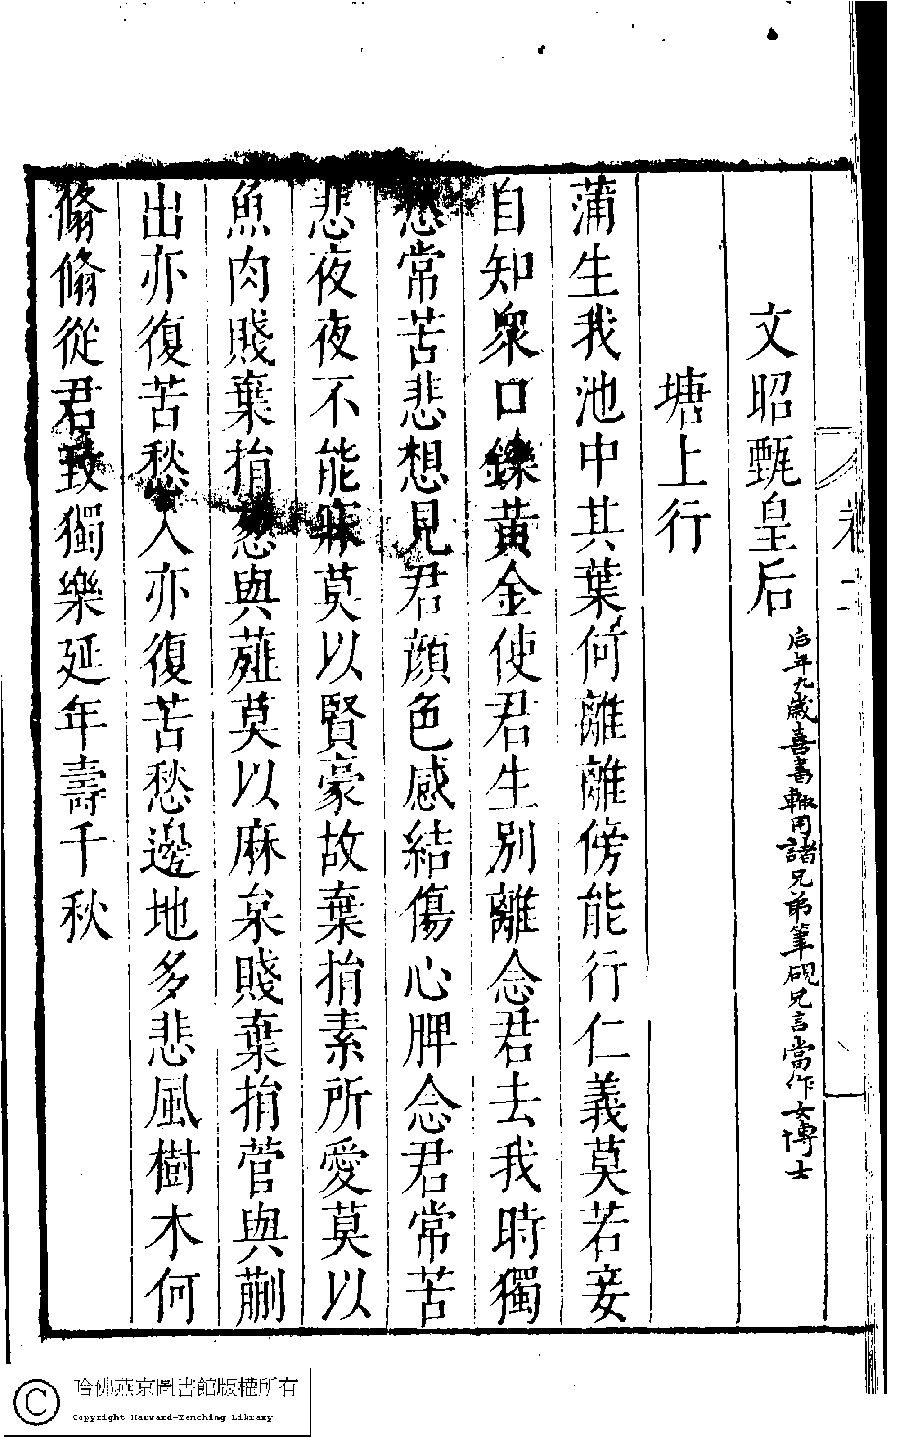 卷二
文昭甄皇后
后年九歲喜書輒用諸兄弟筆硯兄言當作女博士
塘上行
蒲生我池中其葉何離離傍能行仁義莫若妾
自知衆口鑠黃金使君生別離念君去我時獨
愁常苦悲想見君顏色感結傷心脾念君常苦
悲夜夜不能寐莫以賢豪故棄捐素所愛莫以
魚肉賤棄捐葱與薤莫以麻枲賤棄捐菅與蒯
出亦復苦愁入亦復苦愁邊地多悲風樹木何
翛翛從君致獨樂延年壽千秋
哈佛燕京圖書館版權所有
Copyright Harvard-Yenching Library